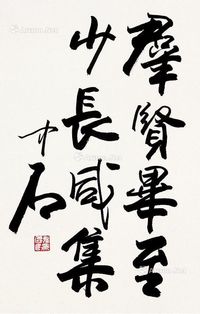 羣賢畢至
少長咸集
中石